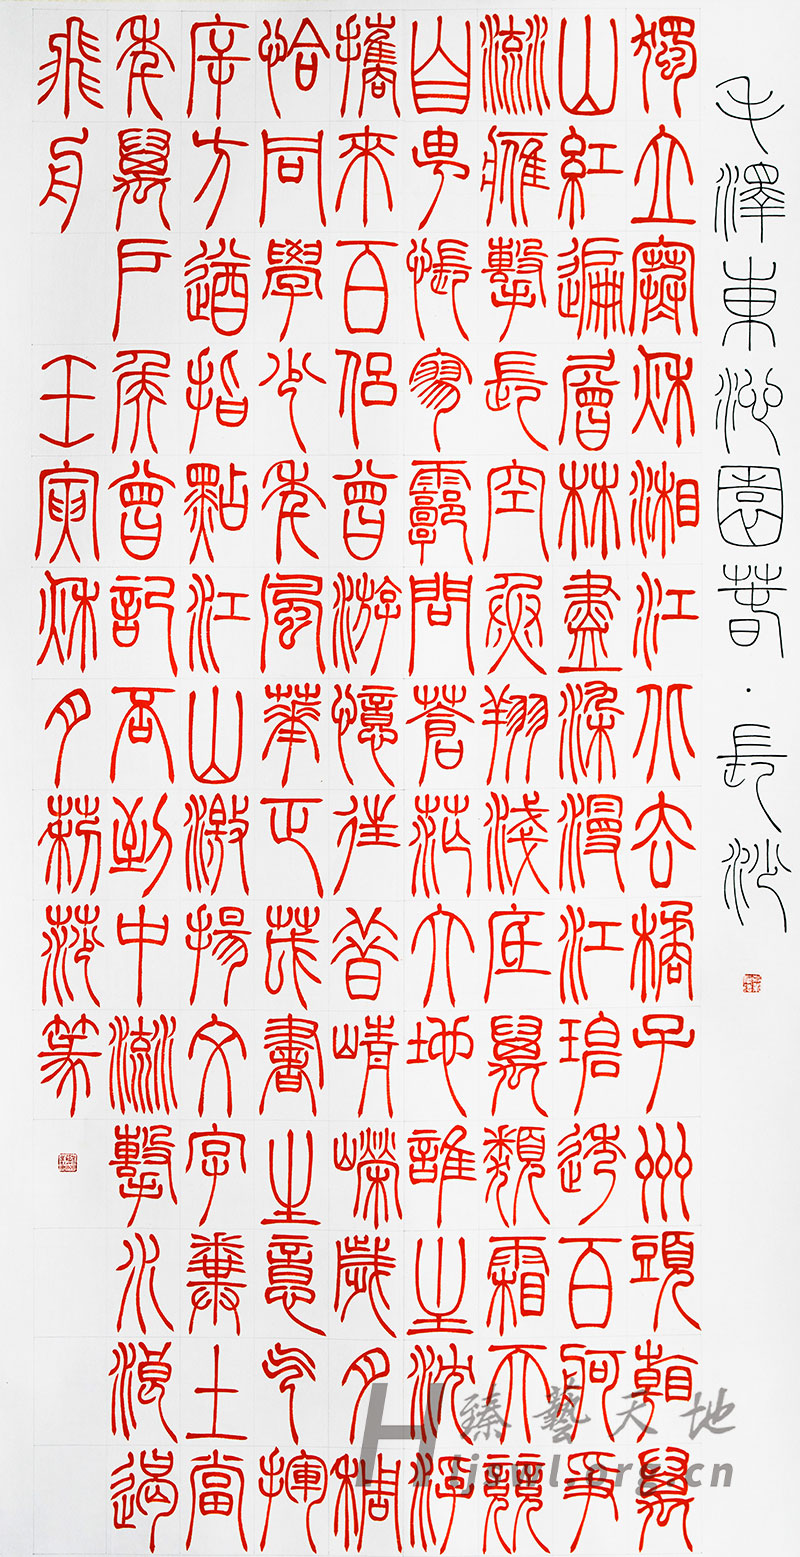 毛澤東沁園春·長沙
獨立寒秋湘江北去橘子州頭看萬
山紅遍層林盡染漫江碧透百舸爭
流鷹擊長空魚翔淺底萬類霜天競
自由悵寥廓問蒼茫大地誰主沉浮
攜來百侶曾游憶往昔崢嶸歲月稠
恰同學少年風華正茂書生意氣揮
斥方遒指點江山激揚文字糞土當
年萬戶侯曾記否到中流擊水浪遏
飛舟 壬寅秋月莉莎篆
臻藝天地
Hljswl.org.cn